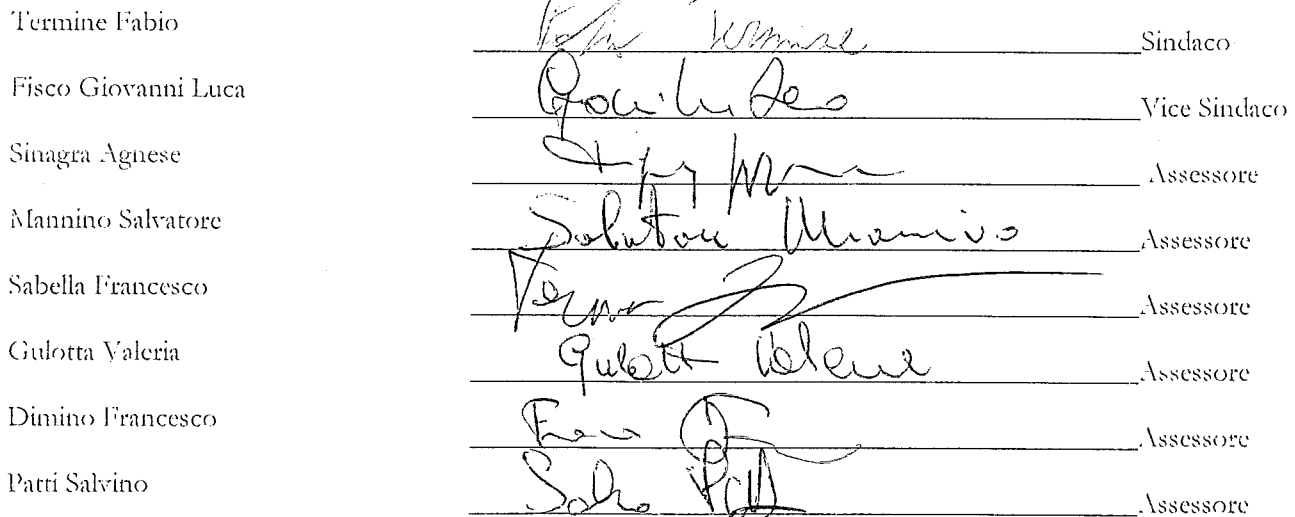 Termine Fabio Fabio Termine Sindaco
Fisco Giovanni Luca Vice Sindaco
Sinagra Agnese Assessore
Mannino Salvatore Salvatore Mannino Assessore
Sabella Francesco Assessore
Gulotta Valeria Gulotta Valeria Assessore
Dimino Francesco Assessore
Patti Salvino Assessore